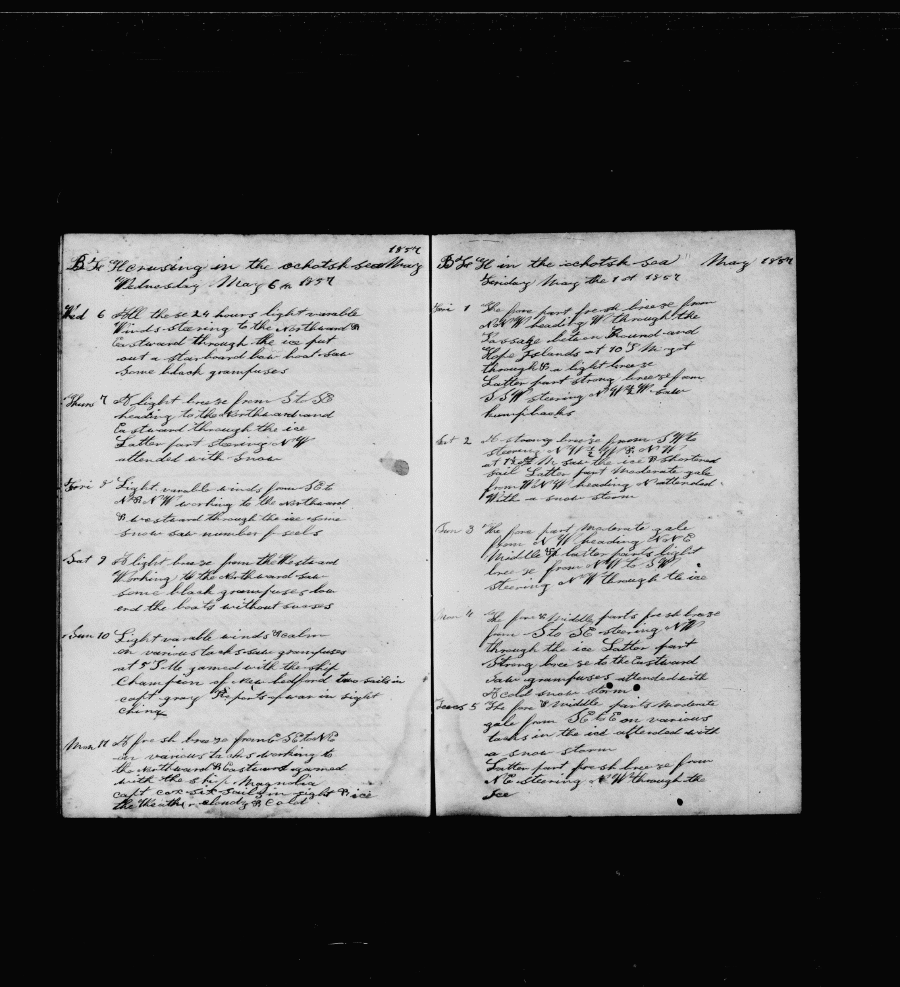 1857
Bk Fr H crusing in the ochotsk sea May
Wednesday May 6th 1857
Wed 6 All these 24 hours light varable
Winds steering to the Northward &
Eastward through the ice put
out a starboard bow boat saw
some black grampuses
Thurs 7 A light breeze from S to SE
heading to the Northward and
Eastward through the ice
Latter part steering NW
attended with snow
Fri 8 Light varable winds from SE to
N & NW working to the Northward
& westward through the ice some
snow saw number f seels
Sat 9 A light breeze from the Westward
Working to the Northward saw
some black grampuses low
erd the boats without sucses
Sun 10 Light varable winds & calm
on various tacks saw grampuses
at 5 P M gamed with the ship
Champion of New bedford two sails in
capt gray Reports of war in sight
China
Mon 11 A fresh breeze from E SE to NE
on various tacks working to
the Northward & Eastward gamed
with the ship Magnolia
capt cox six sails in sight & ice
the Weather cloudy & Cold
Bk Fr H in the ochotsk sea " May 1857
Friday May the 1st 1857
Fri 1 The fore part fresh breeze from
NNW heading W through the
Passage between Round and
Hope Islands at 10 P M got
through & a light breeze
Latter part strong breeze from
SSW steering NW½W saw
humpbacks
Sat 2 A strong breeze from SW to
steering NW½W & NW
at M saw the ice & shortened
sail Latter part moderate gale
from WNW heading N attended
With a snow storm
Sun 3 The fore part moderate gale
from NW heading NNE
Middle & Latter parts light
breeze from NW to SW
steering NW through the ice
Mon 4 The fore & Middle parts fresh breeze
from S to SE steering NW
through the ice Latter part
Strong breeze to the Eastward
saw grampuses attended with
A cold snow storm
Tues 5 The fore & middle parts moderate
gale from SE to E on various
tacks in the ice attended with
a snow storm
Latter part fresh breeze from
NE steering NW through the
Ice